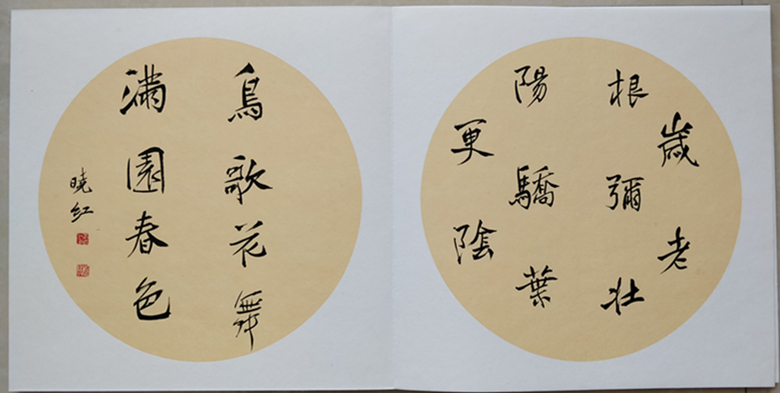 歲老
根彌壯
陽驕葉
更陰
鳥歌花舞
滿園春色
曉紅